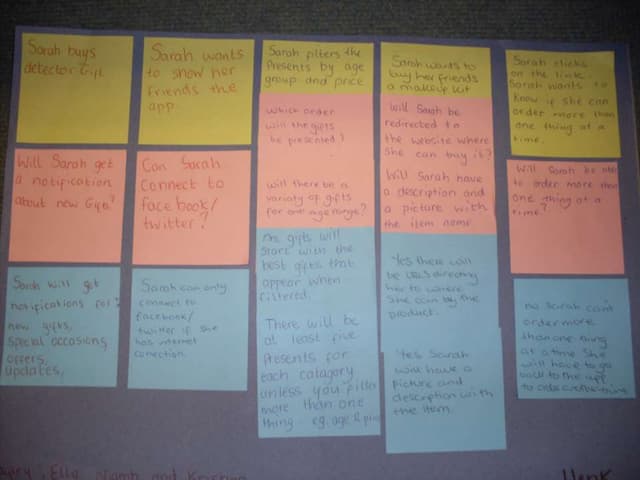 Sarah buys
detector gift
Will Sarah get
a notification
about new Gifts?
Sarah will get
notifications for
new gifts,
special occasions,
offers,
updates,
Sarah wants
to show her
friends the
app
Can Sarah
Connect to
facebook/
twitter?
Sarah can only
connect to
facebook/
twitter if she
has internet
conection.
Sarah filters the
Presents by age
group and price
Which order
will the gifts
be presented?
will there be a
variaty of gifts
for one age range?
gifts will
start with the
best gifts that
appear when
filtered.
There will be
at least five
Presents for
each catagory
unless you filter
more than one
thing - eg. age &
Sarah wants to
buy her friends
a makeup kit
Will Sarah be
redirected to
the website where
She can buy it?
Will Sarah have
a description and
a picture with
the item name
Yes there will
be URLS directing
her to where
She can by the
product.
Yes Sarah
will have a
picture and
description with
the item.
Sarah clicks
on the link.
Sarah wants to
know if she can
order more than
one thing at a
time.
Will Sarah be able
to order more than
one thing at a
time?
no Sarah can't
order more
than one thing
at a time she
will have to go
back to the app
to order
Ella, Niamh and